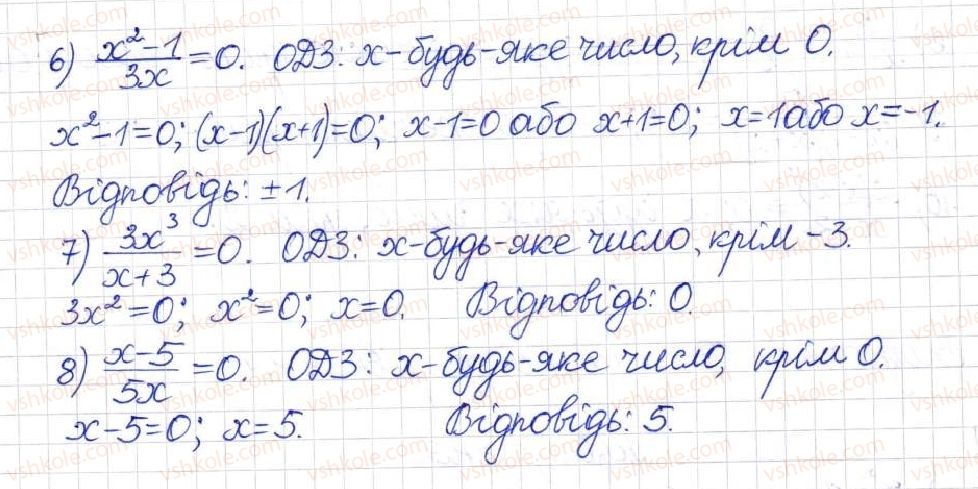 6) (x²-1)/(3x) = 0. ОДЗ: x - будь-яке число, крім 0.
x²-1=0; (x-1)(x+1)=0; x-1=0 або x+1=0; x=1 або x=-1.
Відповідь: ±1.
7) (3x³)/(x+3) = 0. ОДЗ: x - будь-яке число, крім -3.
3x²=0; x²=0; x=0. Відповідь: 0.
8) (x-5)/(5x) = 0. ОДЗ: x - будь-яке число, крім 0.
x-5=0; x=5. Відповідь: 5.
vshkole.com